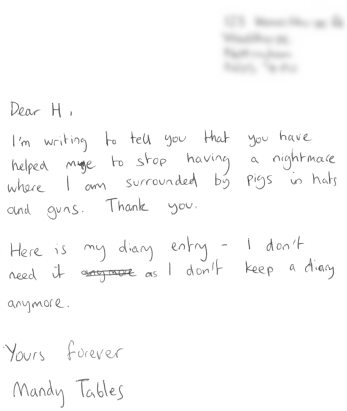 Dear H,
I'm writing to tell you that you have
helped me to stop having a nightmare
where I am surrounded by pigs in hats
and guns. Thank you.
Here is my diary entry - I don't
need it anymore as I don't keep a diary
anymore.
Yours forever
Mandy Tables